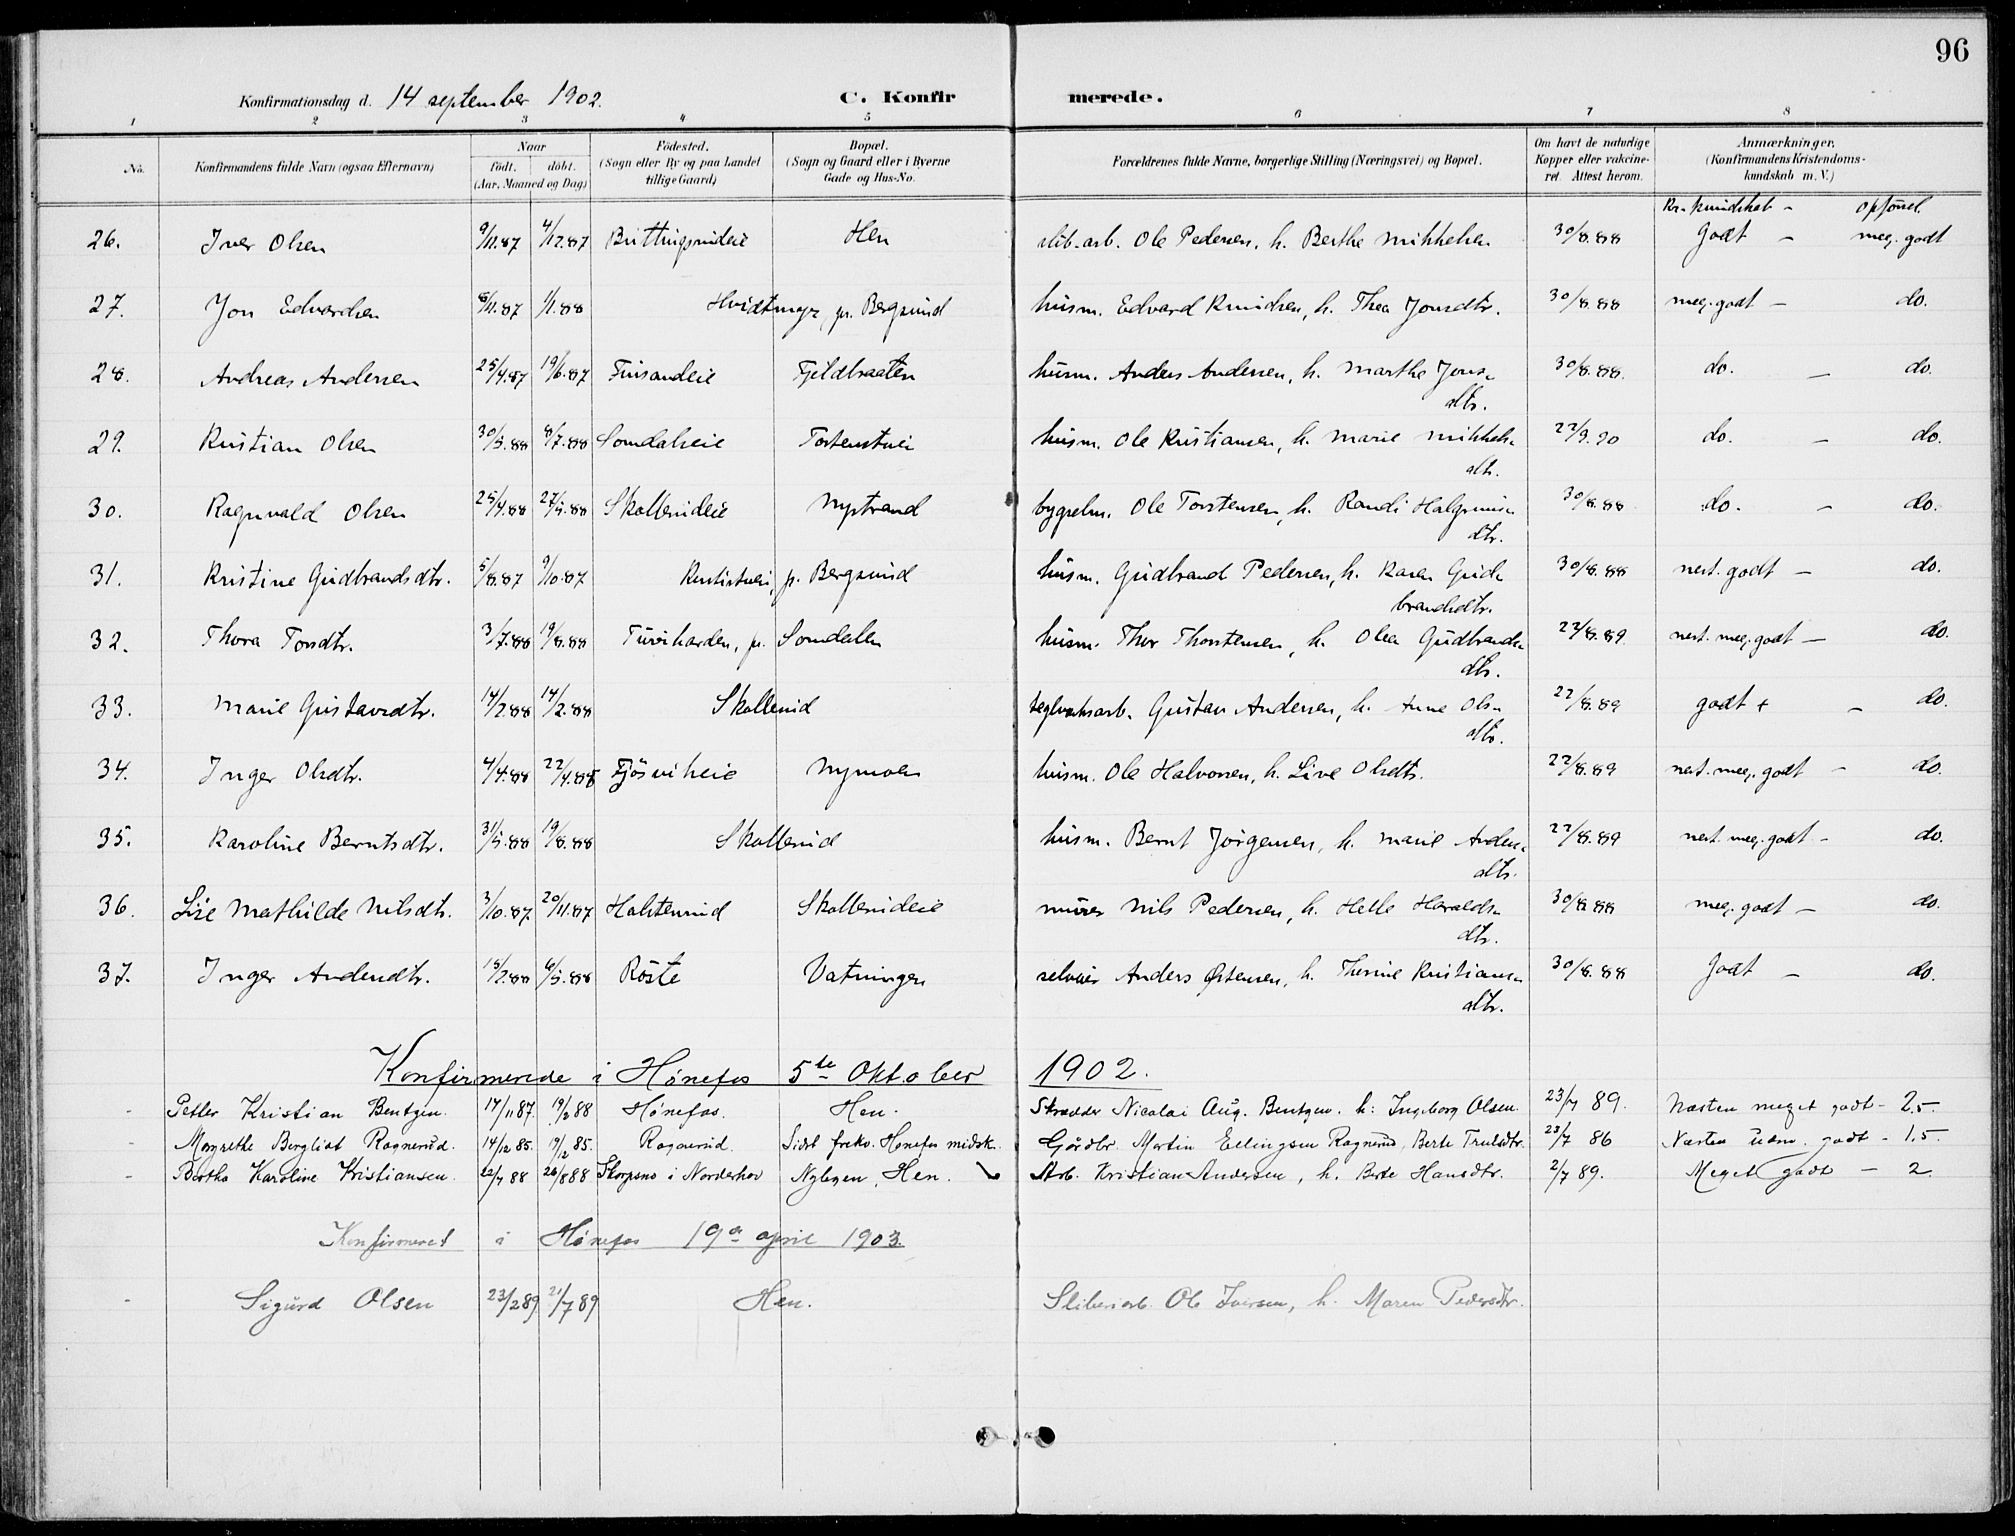 96
Konfirmationsdag d. 14 september 1902. C. Konfirmerede.
1 2 3 4 5 6 7 8
No. Konfirmandens fulde Navn (ogsaa Efternavn) Naar født. døbt. (Aar, Maaned og Dag) Fødested. (Sogn eller By og paa Landet tillige Gaard) Bopæl. (Sogn og Gaard eller i Byerne Gade og Hus-No. Forældrenes fulde Navne, borgerlige Stilling (Næringsvei) og Bopæl. Om havt de naturlige Kopper eller vakcineret. Attest herom. Anmærkninger. (Konfirmandens Kristendomskundskab m. V.)
Kr. kundskab - opførsel.
26. Iver Olsen 9/11.87 4/12.87 Hen slib.arb. Ole Pedersen, h. Berthe Mikkelsen 30/8.88 godt - meg. godt
27. Jon Edvardsen 8/11.87 1/1.88 Hvidtmyr, pr. Bergsund husm. Edvard Knudsen, h. Thea Jonsdtr. 30/8.88 meg. godt - do.
28. Andreas Andersen 25/4.87 19/6.87 Finsandeie Fjeldbraaten husm. Anders Andersen, h. Marthe Jons-
dtr. 30/8.88 do. - do.
29. Kristian Olsen 30/5.88 8/7.88 Somdaleie husm. Ole Kristiansen, h. Marie Mikkels-
dtr. 22/9.90 do. - do.
30. Ragnvald Olsen 25/4.88 27/5.88 Skollerudeie Nystrand bygselm. Ole Torstensen, h. Randi Halgrims-
dtr. 30/8.88 do. - do.
31. Kristine Gudbrandsdtr. 5/8.87 9/10.87 p. Bergsund husm. Gudbrand Pedersen, h. Karen Gud-
brandsdtr. 30/8.88 nest. godt - do.
32. Thora Torsdtr. 3/7.88 19/8.88 pr. Somdalen husm. Thor Thorstensen, h. Olea Gudbrands-
dtr. 22/8.89 nest. meg. godt - do.
33. Marie Gustavsdtr. 14/2.88 Skollerud teglverksarb. Gustav Andersen, h. Anne Ols-
dtr. 22/8.89 godt + - do.
34. Inger Olsdtr. 4/4.88 22/4.88 Fjösvikeie Nymoen husm. Ole Halvorsen, h. Live Olsdtr. 22/8.89 nest. meg. godt - do.
35. Karoline Berntsdtr. 31/5.88 19/8.88 Skollerud husm. Bernt Jörgensen, h. Marie Anders-
dtr. 22/8.89 nest. meg. godt - do.
36. Lise Mathilde Nilsdtr. 3/10.87 20/11.87 Halstenrud Skollerudeie murer Nils Pedersen, h. Helle Haralds-
dtr. 30/8.88 meg. godt - do.
37. Inger Andersdtr. 15/2.88 6/5.88 Röste Vatningen selveier Anders Østensen, h. Therine Kristians-
dtr. 30/8.88 godt - do.
Konfirmerede i Hønefos 5te Oktober 1902.
- Petter Kristian Bentzen. 17/11 87. 19/2 88 Hønefos. Hen. Skrædder Nicolai Aug. Bentzen. h: Ingeborg Olsen. 23/7 89. Næsten meget godt - 2.5.
- Margrethe Bergliot Ragnerud. 14/12 85. Ragnerud. Sidst frekv. Hønefos midsk. Gårdbr. Martin Ellingsen Ragnerud, Berte Trulsdtr. 23/7 86 Næsten udm. godt - 1.5.
- Bertha Karoline Kristiansen. 22/7 88 26/8 88 i Norderhov Hen. Arb. Kristian Andersen, h. Berte Hansdtr. 2/7 89. Meget godt - 2
Konfirmeret i Hønefos 19de april 1903.
- Sigurd Olsen 23/2 89 21/7 89 Hen. Sliberiarb. Ole Iversen, h. Maren Pedersdtr.